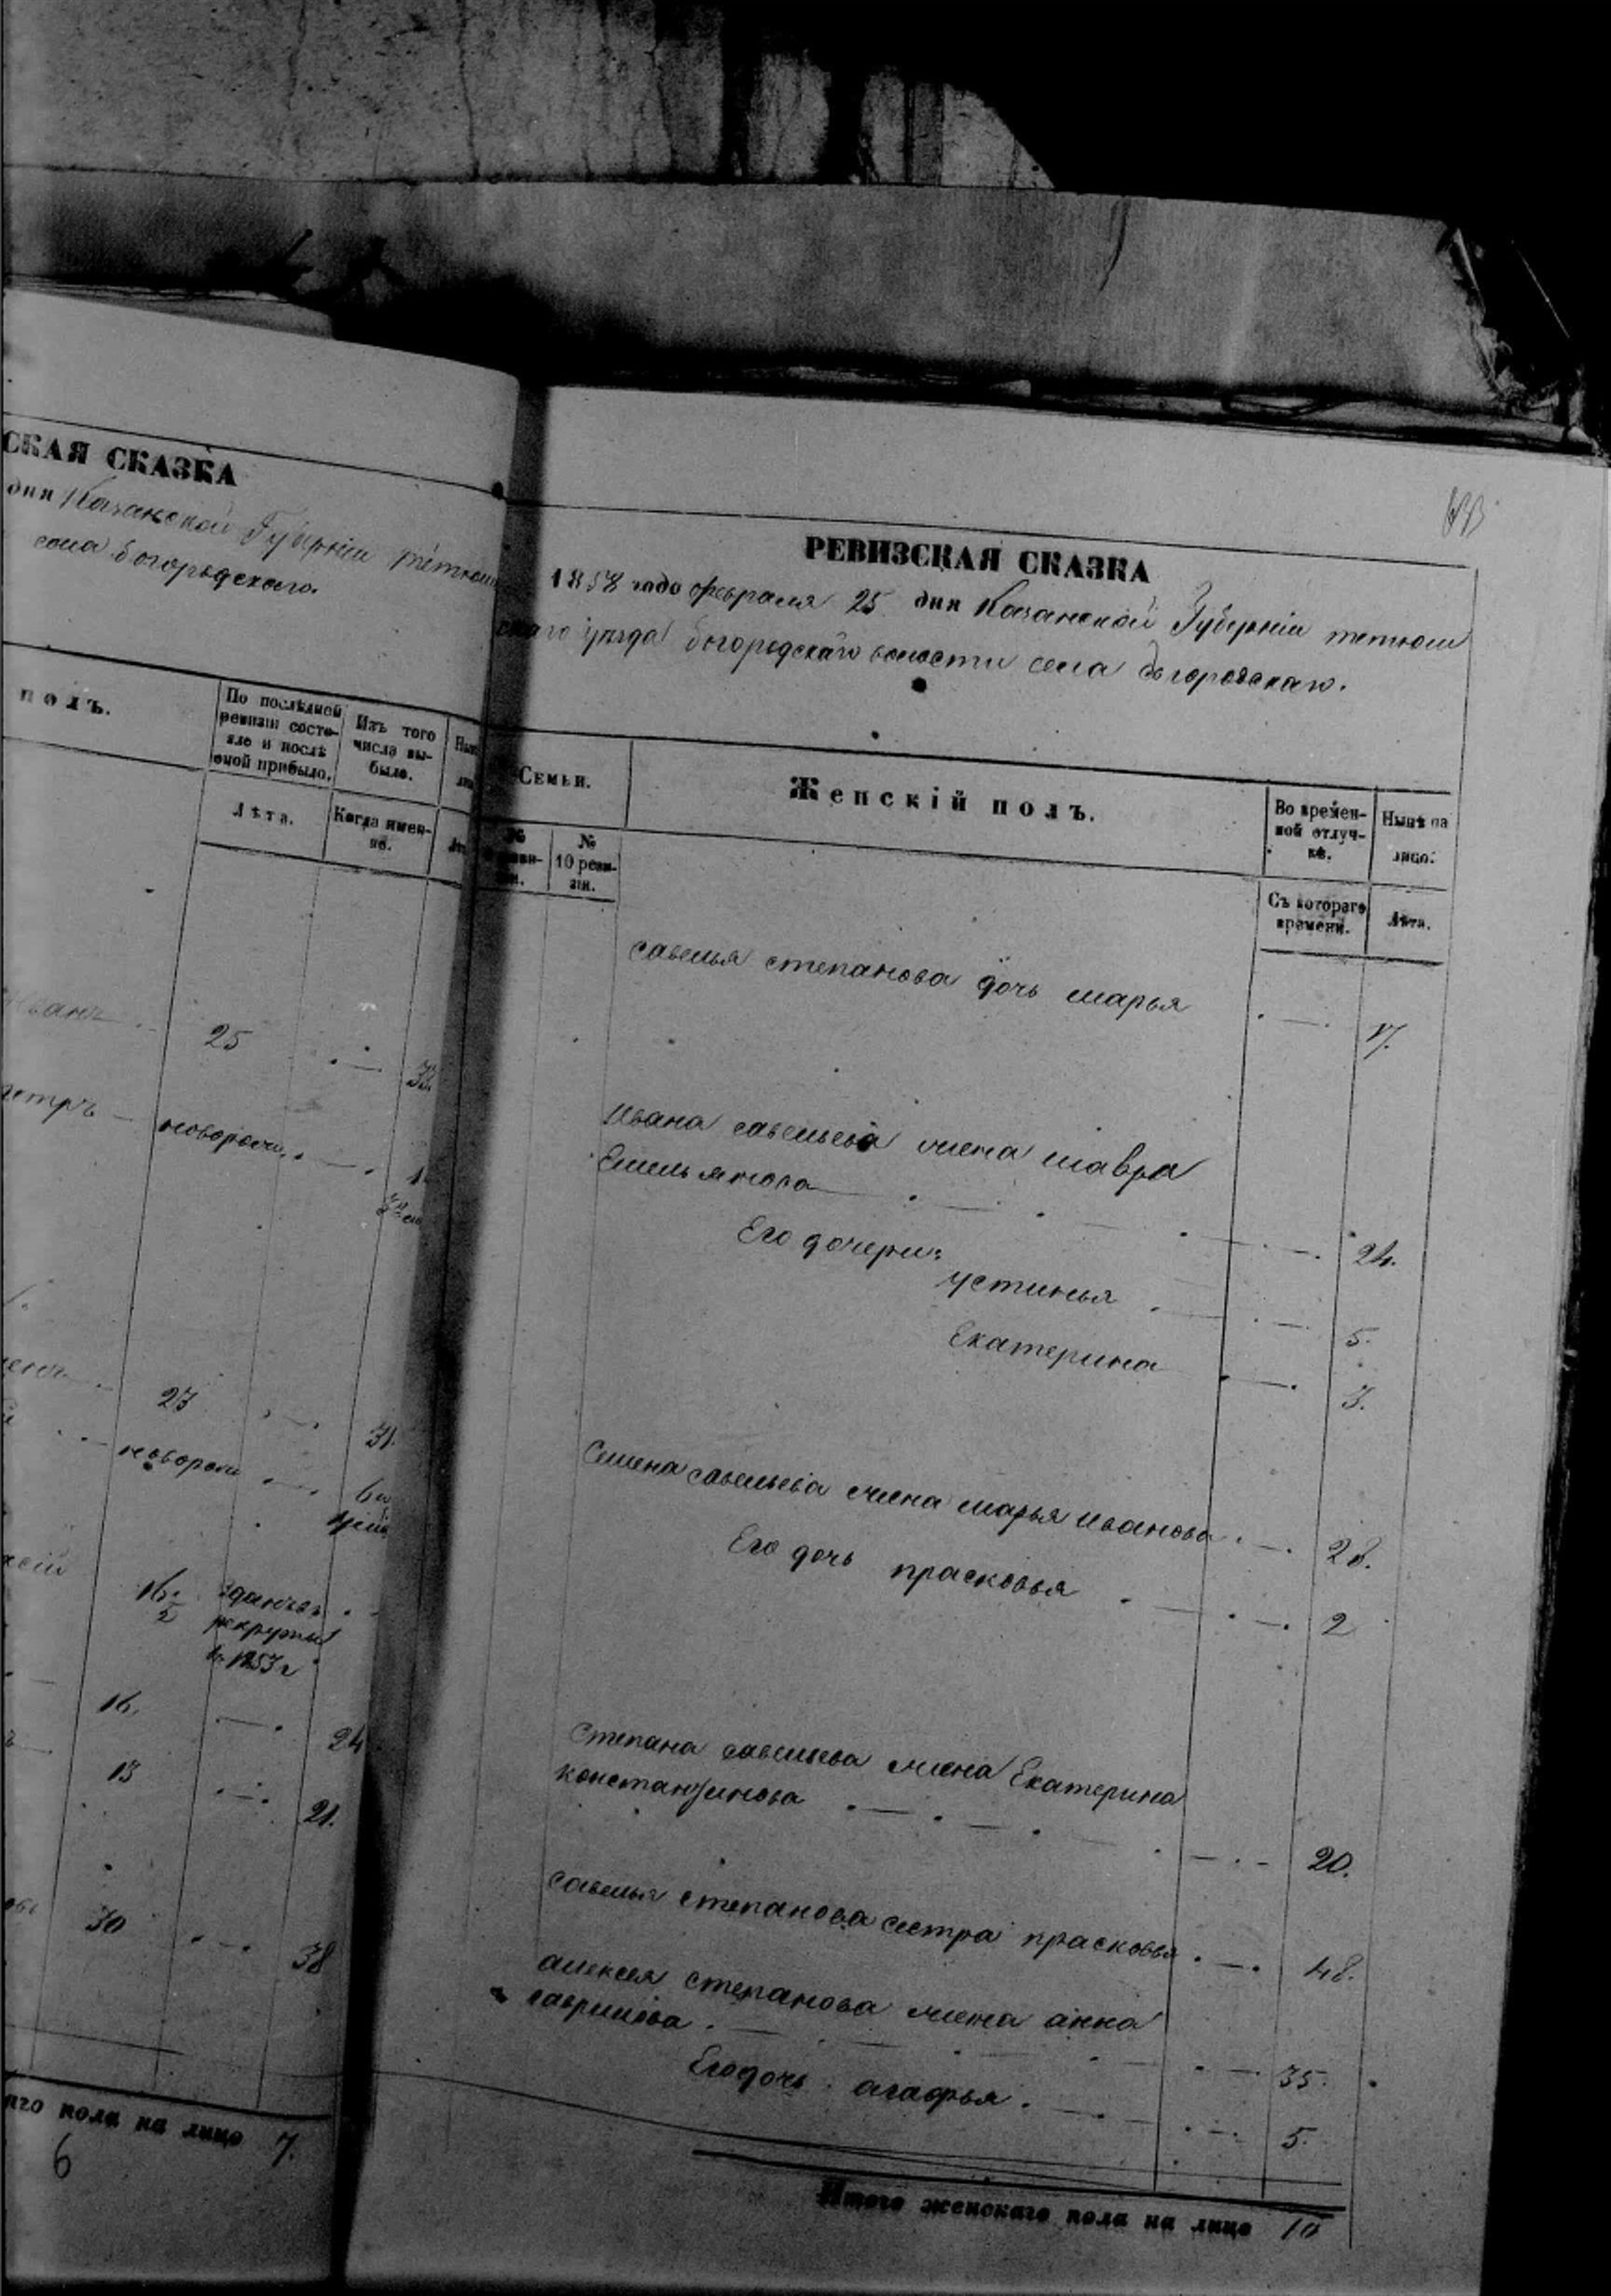 СКАЯ СКАЗКА
дня Казанской Губерніи тетюш
села богородскаго.
полъ.
По послѣдней ревизіи состояло и послѣ оной прибыло.
Изъ того числа выбыло.
Лѣта.
Когда именно.
25
новорожд.
23
31.
новорож
16.
2
зданъ въ
рекруты
в. 1853 г
16.
24
13
21.
30
38
аго пола на лицо 7.
6
РЕВИЗСКАЯ СКАЗКА
1858 года февраля 25 дня Казанской Губерніи тетюш
скаго уѣзда богородскаго волости села богородскаго.
Семьи.
Женскій полъ.
Во временной отлучкѣ.
Нынѣ на лицо.
№
10 ревизіи.
Съ котораго времени.
Лѣта.
савелья степанова дочь марья
Ивана савельева жена мавра
Емельянова 24.
Его дочери:
устинья 5.
Екатерина 3.
Семена савельева жена марья иванова 28.
Его дочь прасковья 2
степана савельева жена Екатерина
константинова 20.
савелья степанова сестра прасковья 48.
алексея степанова жена анна
гаврилова 35.
Его дочь агафья 5.
Итого женскаго пола на лицо 10